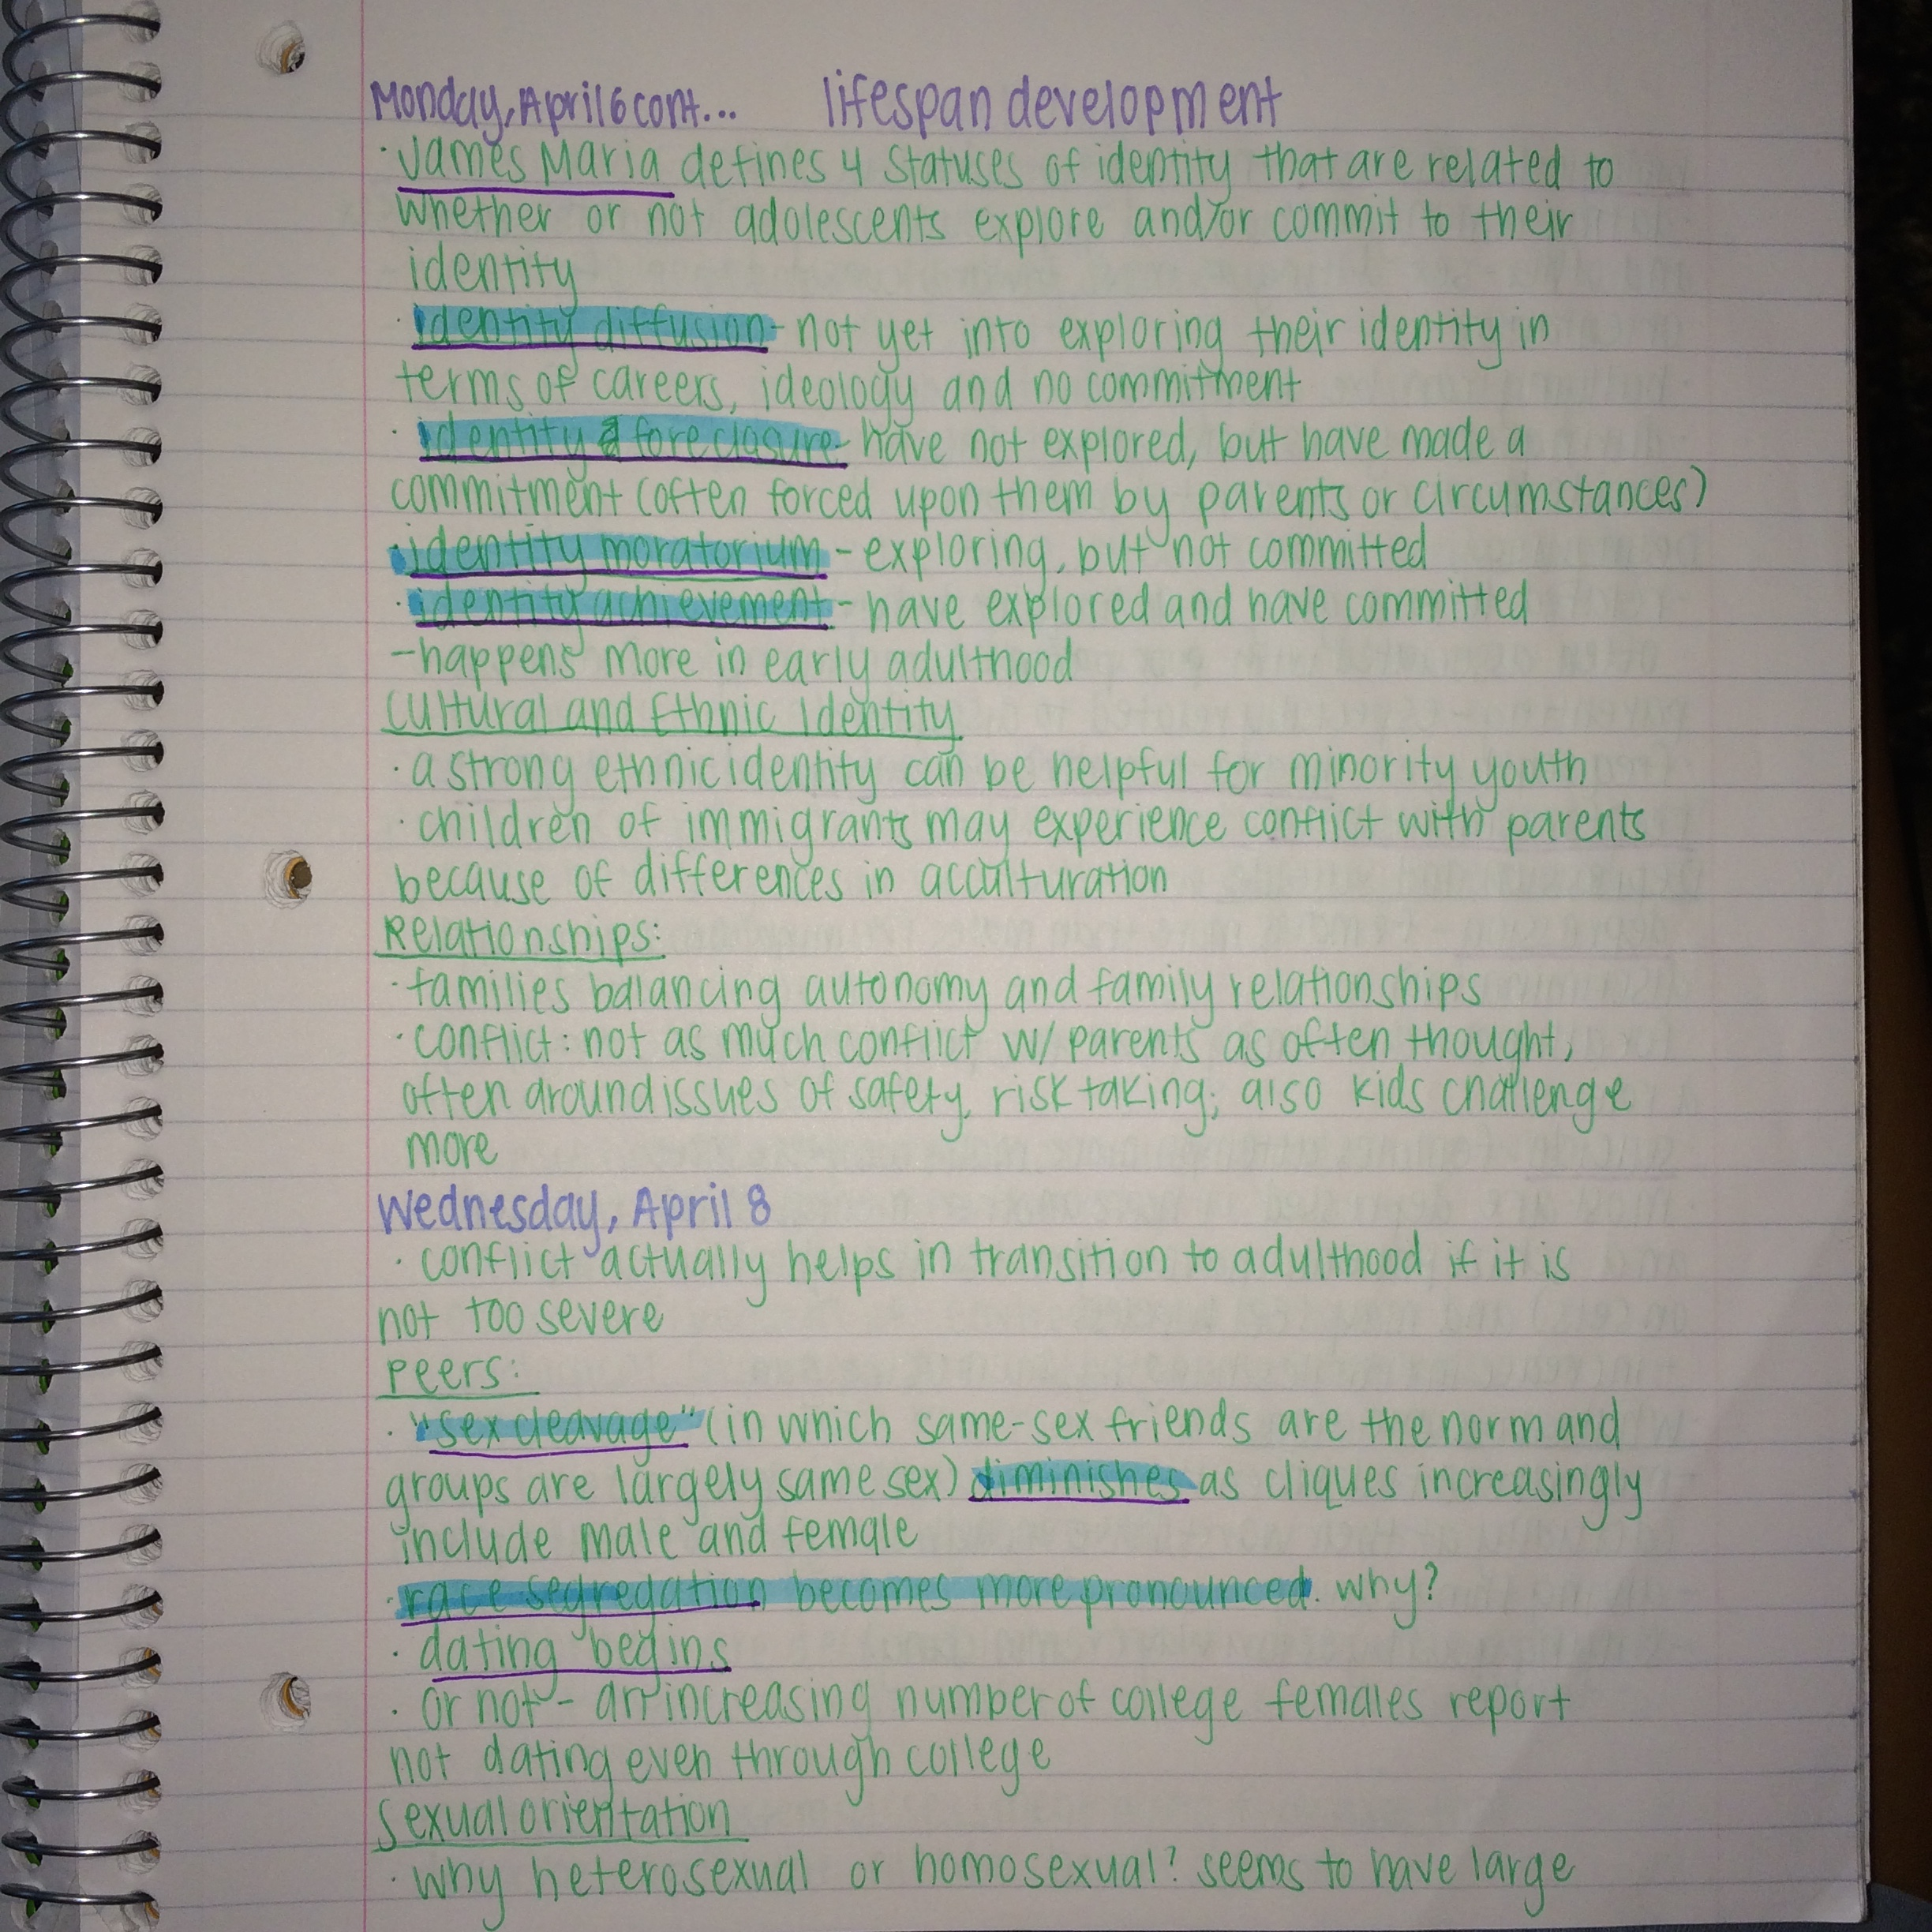 Monday, April 6 cont... lifespan development
· James Maria defines 4 statuses of identity that are related to
whether or not adolescents explore and/or commit to their
identity
· identity diffusion - not yet into exploring their identity in
terms of careers, ideology and no commitment
· identity foreclosure - have not explored, but have made a
commitment (often forced upon them by parents or circumstances)
· identity moratorium - exploring, but not committed
· identity achievement - have explored and have committed
- happens more in early adulthood
Cultural and Ethnic Identity
· a strong ethnic identity can be helpful for minority youth
· children of immigrants may experience conflict with parents
because of differences in acculturation
Relationships:
· families balancing autonomy and family relationships
· conflict: not as much conflict w/ parents as often thought,
often around issues of safety, risk taking; also kids challenge
more
Wednesday, April 8
· conflict actually helps in transition to adulthood if it is
not too severe
Peers:
· "sex cleavage" (in which same-sex friends are the norm and
groups are largely same sex) diminishes as cliques increasingly
include male and female
· race segregation becomes more pronounced. why?
· dating begins
· or not - an increasing number of college females report
not dating even through college
Sexual orientation
· why heterosexual or homosexual? seems to have large